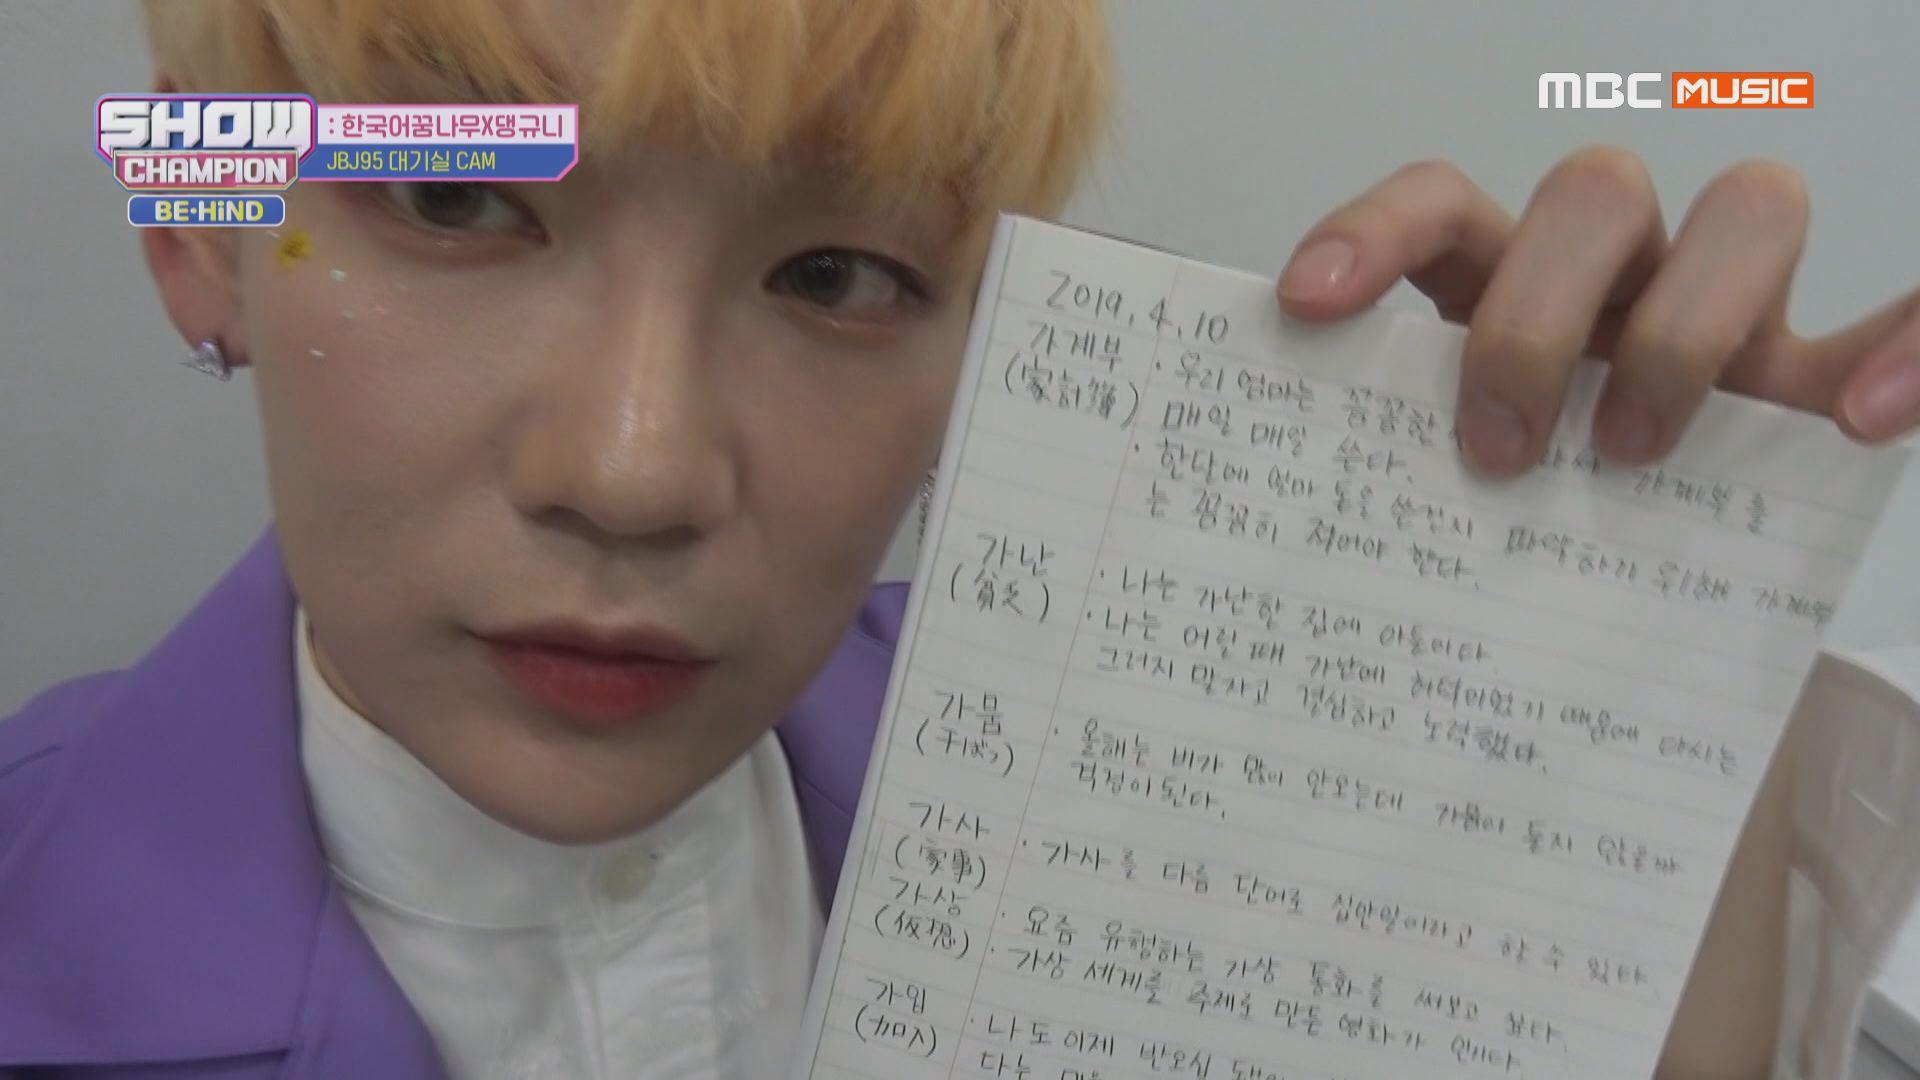 SHOW
CHAMPION
BE·HiND
: 한국어꿈나무X댕규니
JBJ95 대기실 CAM
MBC MUSIC
2019.4.10
가계부
(家計簿)
· 우리 엄마는 꼼꼼한 가계부를
매일 매일 쓴다.
· 한달에 얼마 돈을 쓴건지 파악하기 위해 가계부
는 꼼꼼히 적어야 한다.
가난
(貧乏)
· 나는 가난한 집에 아들이다.
· 나는 어릴 때 가난에 허덕이었기 때문에 다시는
그러지 말자고 결심하고 노력했다.
가뭄
(干ばつ)
· 올해는 비가 많이 안오는데 가뭄이 들지 않을까
걱정이 된다.
가사
(家事)
· 가사를 다름 단어로 집안일이라고 할 수 있다.
가상
(仮想)
· 요즘 유행하는 가상 통화를 써보고 싶다.
· 가상 세계를 주제로 만든 영화가 인기다.
가입
(加入)
· 나도 이제 반오십
다는